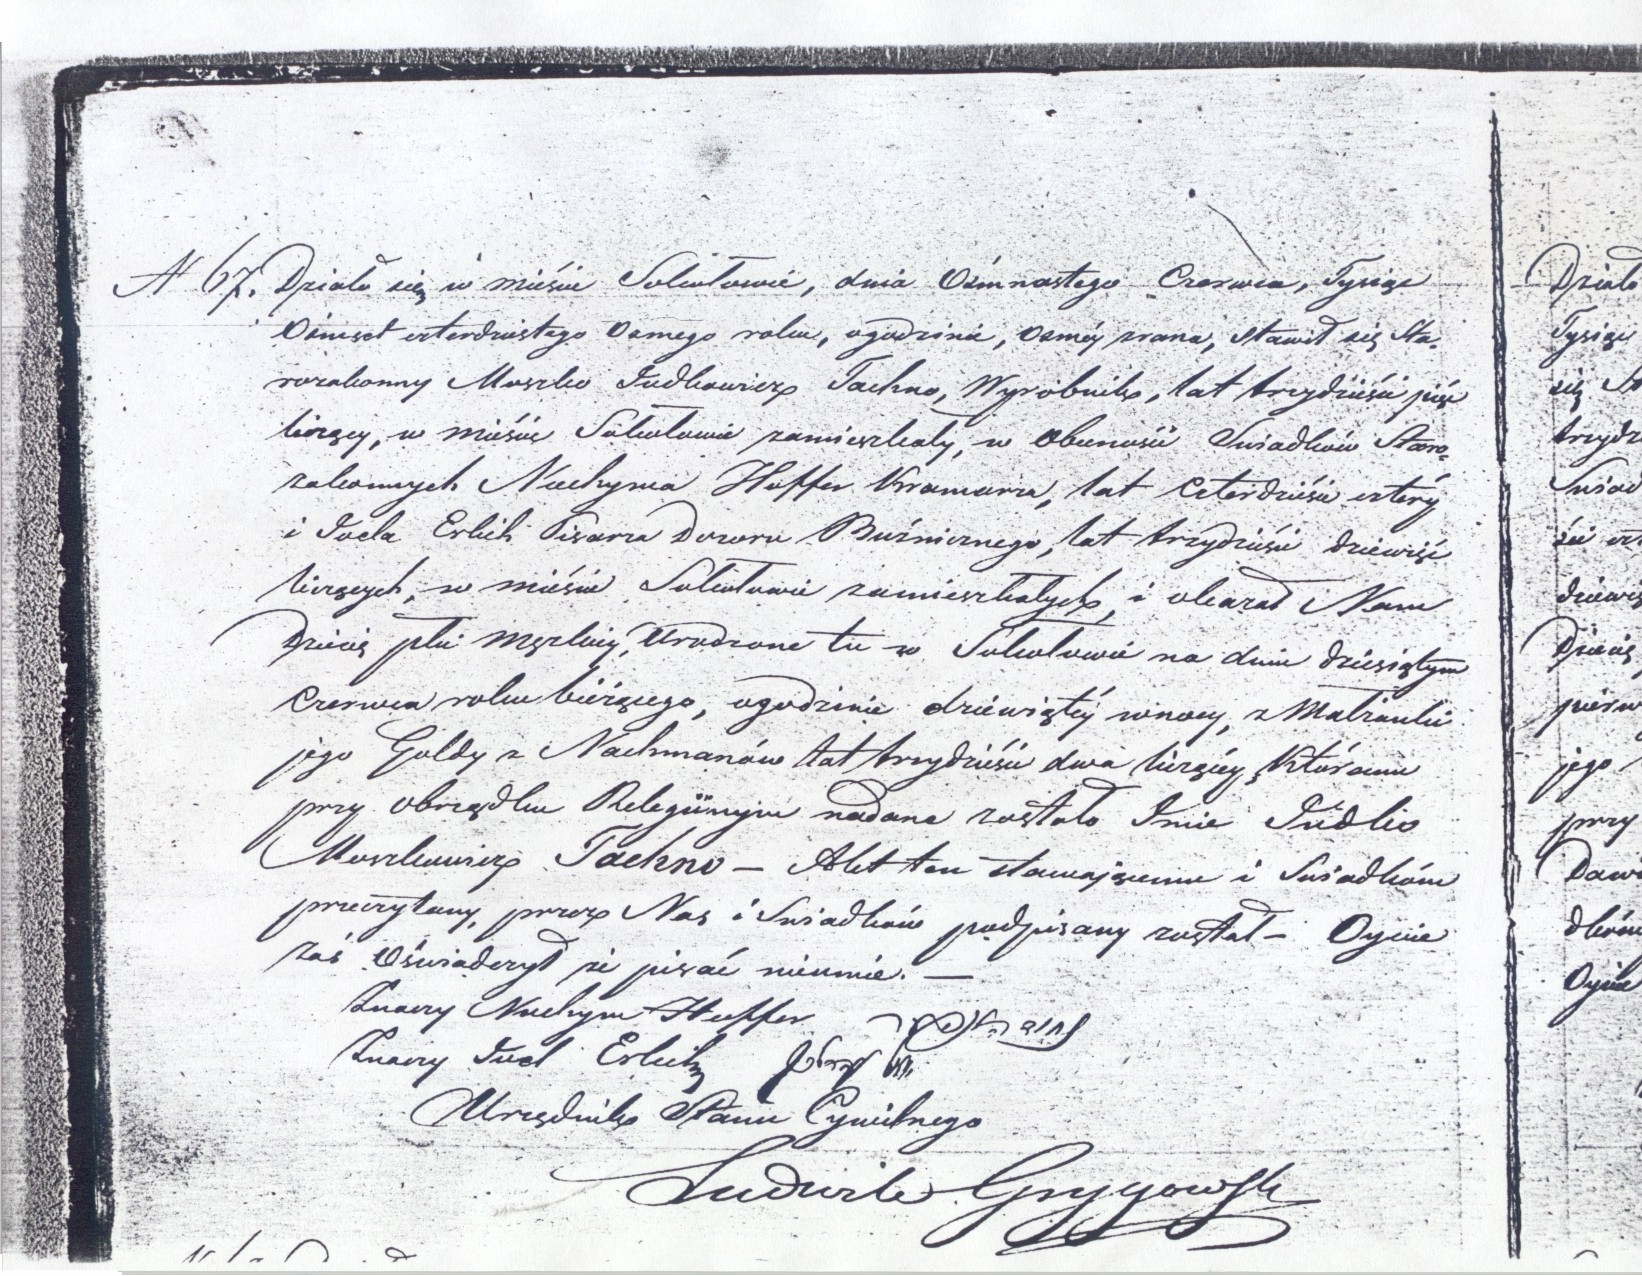 N 67. Działo się w mieście Sokołowie, dnia Ośmnastego Czerwca, Tysiąc
Ośmset czterdziestego Osmego roku, ogodzinie, Osméj zrana, Stawił się Sta-
rozakonny Moszko Judkowicz Tachno, Wyrobnik, lat trzydzieści pięć
liczący, w mieście Sokołowie zamieszkały, w Obecności Swiadków Staro-
zakonnych Nuchyma Hoffer Kramarza, lat Czterdzieści cztéry
i Joela Erlich Pisarza Dozoru Buźniczego, lat trzydzieści dziewięć
liczących, w mieście Sokołowie zamieszkałych, i okazał Nam
Dziecię płci męzkiéj, Urodzone tu w Sokołowie na dniu dziesiątym
Czerwca roku bieżącego, ogodzinie dziewiątéj wnocy, z Małżonki
jego Goldy z Nachmanów lat trzydzieści dwa liczącéj, Któremu
przy obrządku Religijnym nadane zostało Imie Judko
Moszkowicz Tachno — Akt ten stawającemu i Swiadkóm
przeczytany, przez Nas i Swiadków podpisany został — Oyciec
zaś Oświadczył że pisać nieumie. —
Znaczy Nuchym Hoffer
Znaczy Joel Erlich
Urzędnik Stanu Cywilnego
Ludwik